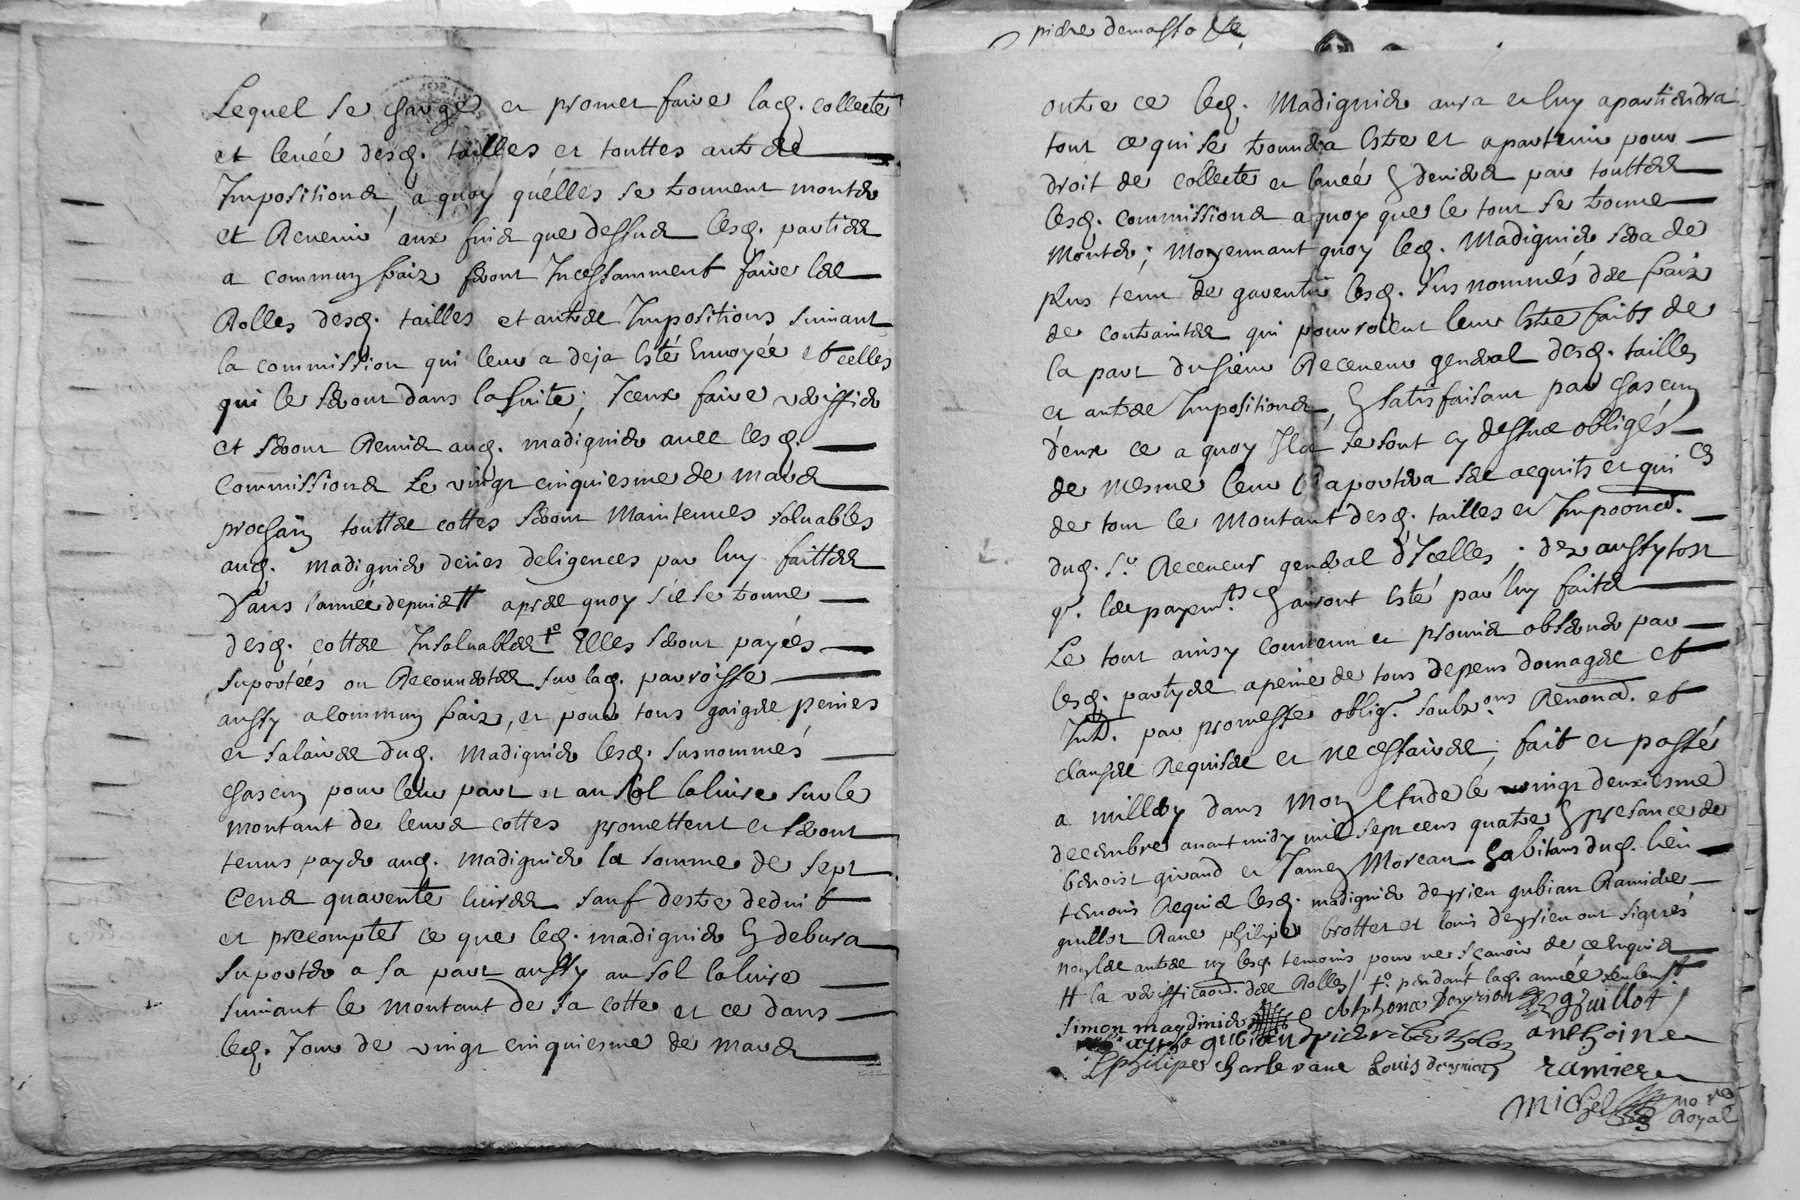 Lequel se charge et promet faire lad. collecte
et leuée desd. tailles et touttes autres
Impositions, a quoy quélles se trouuent monter
et Reuenir aux fins que dessus lesd. parties
a commun fraix feront Incessamment faire les
Rolles desd. tailles et autres Impositions suiuant
la commission qui leur a deja esté Enuoyée et celles
qui le seront dans la suite; Iceux faire veriffier
et seront Remis aud. madignier auec lesd.
Commissions Le vingt cinquiesme de mars
prochain touttes cottes seront Maintenues soluables
aud. madignier deües deligences par luy faittes
Dans l'année depuis # apres quoy s'il se trouue
desd. cottes Insoluables +o Elles seront payées
suportées ou Recouurées sur lad. parroisse
aussy a commun fraix, et pour tous gaiges peines
et salaires dud. Madignier lesd. susnommés
chascun pour leur part et au sol la liure sur le
montant de leurs cottes promettent et seront
tenus payer aud. Madignier la somme de sept
Cens quarente liures sauf destre deduit
et precompté ce que led. madignier En debura
suporter a sa part aussy au sol la liure
suiuant le montant de sa cotte et ce dans
led. Jour de vingt cinquiesme de mars
pierre demasso
outre ce led. Madignier aura et luy apartiendra
tout ce qui se trouuera estre et apartenir pour
droit de collecte et leuée En deniers par touttes
lesd. commissions a quoy que le tout se trouue
monter; Moyennant quoy led. Madignier sera de
plus tenu de garentir lesd. susnommés des fraix
de contraintes qui pourroient leur estre faits de
la part du sieur Receueur general desd. tailles
et autres Impositions, En satisfaisant par chascun
d'eux ce a quoy Ils se sont cy dessus obligés
de mesme leur raportera ses acquits et quices
de tout le Montant desd. tailles et Impoons.
dud. Sr. Receueur general d'Icelles, dez aussytost
q. les payemts. En auront esté par luy faits
Le tout ainsy conuenu et promis obseruer par
lesd. partyes a peine de tous depens domages et
Intz. par promesse obligon. soubzons Renonca. et
clauses Requises et necessaires; fait et passé
a millery dans Mon Etude le vingt deuxiesme
decembre auant midy mil sept cens quatre En presance de
benoist giraud et James Moreau habitans dud. lieu
temoins Requis lesd. madignier deyrieu gubian Ramier
guillot Rane philipe brottet et louis deyrieu ont signés
non les autres ny lesd. temoins pour ne sçauoir de ce Enquis
# la veriffication. des Rolles / +o pendant lad. année seulemt
simon maydinier Alphonce deyrieu guillot
gubian pierre anthoine
philipe charle rane Louis deyrieu ramier
Michel no re
Royal